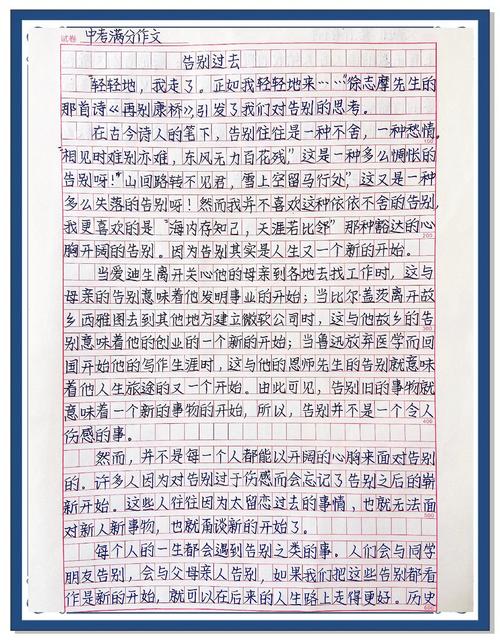 试卷 中考满分作文
告别过去
“轻轻地，我走了。正如我轻轻地来……”徐志摩先生的
那首诗《再别康桥》，引发了我们对告别的思考。
在古今诗人的笔下，告别往往是一种不舍，一种愁情。
“相见时难别亦难，东风无力百花残。”这是一种多么惆怅的
告别呀！“山回路转不见君，雪上空留马行处”这又是一种
多么失落的告别呀！然而我并不喜欢这种依依不舍的告别，
我更喜欢的是“海内存知己，天涯若比邻”那种豁达的心
胸开阔的告别。因为告别其实是人生又一个新的开始。
当爱迪生离开关心他的母亲到各地去找工作时，这与
母亲的告别意味着他发明事业的开始；当比尔·盖茨离开故
乡西雅图去到其他地方建立微软公司时，这与他故乡的告
别意味着他的创业的一个新的开始；当鲁迅放弃医学而回
国开始他的写作生涯时，这与他的恩师先生的告别就意味
着他人生旅途的又一个开始。由此可见，告别旧的事物就
意味着一个新的事物的开始，所以，告别并不是一个令人
伤感的事。
然而，并不是每一个人都能以开阔的心胸来面对告别
的。许多人因为对告别过于伤感而会忘记了告别之后的崭
新开始。这些人往往因为太留恋过去的事情，也就无法面
对新人新事物，也就甭谈新的开始了。
每个人的一生都会遇到告别之类的事。人们会与同学
朋友告别，会与父母亲人告别，如果我们把这些告别都看
作是新的开始，就可以在后来的人生路上走得更好。历史